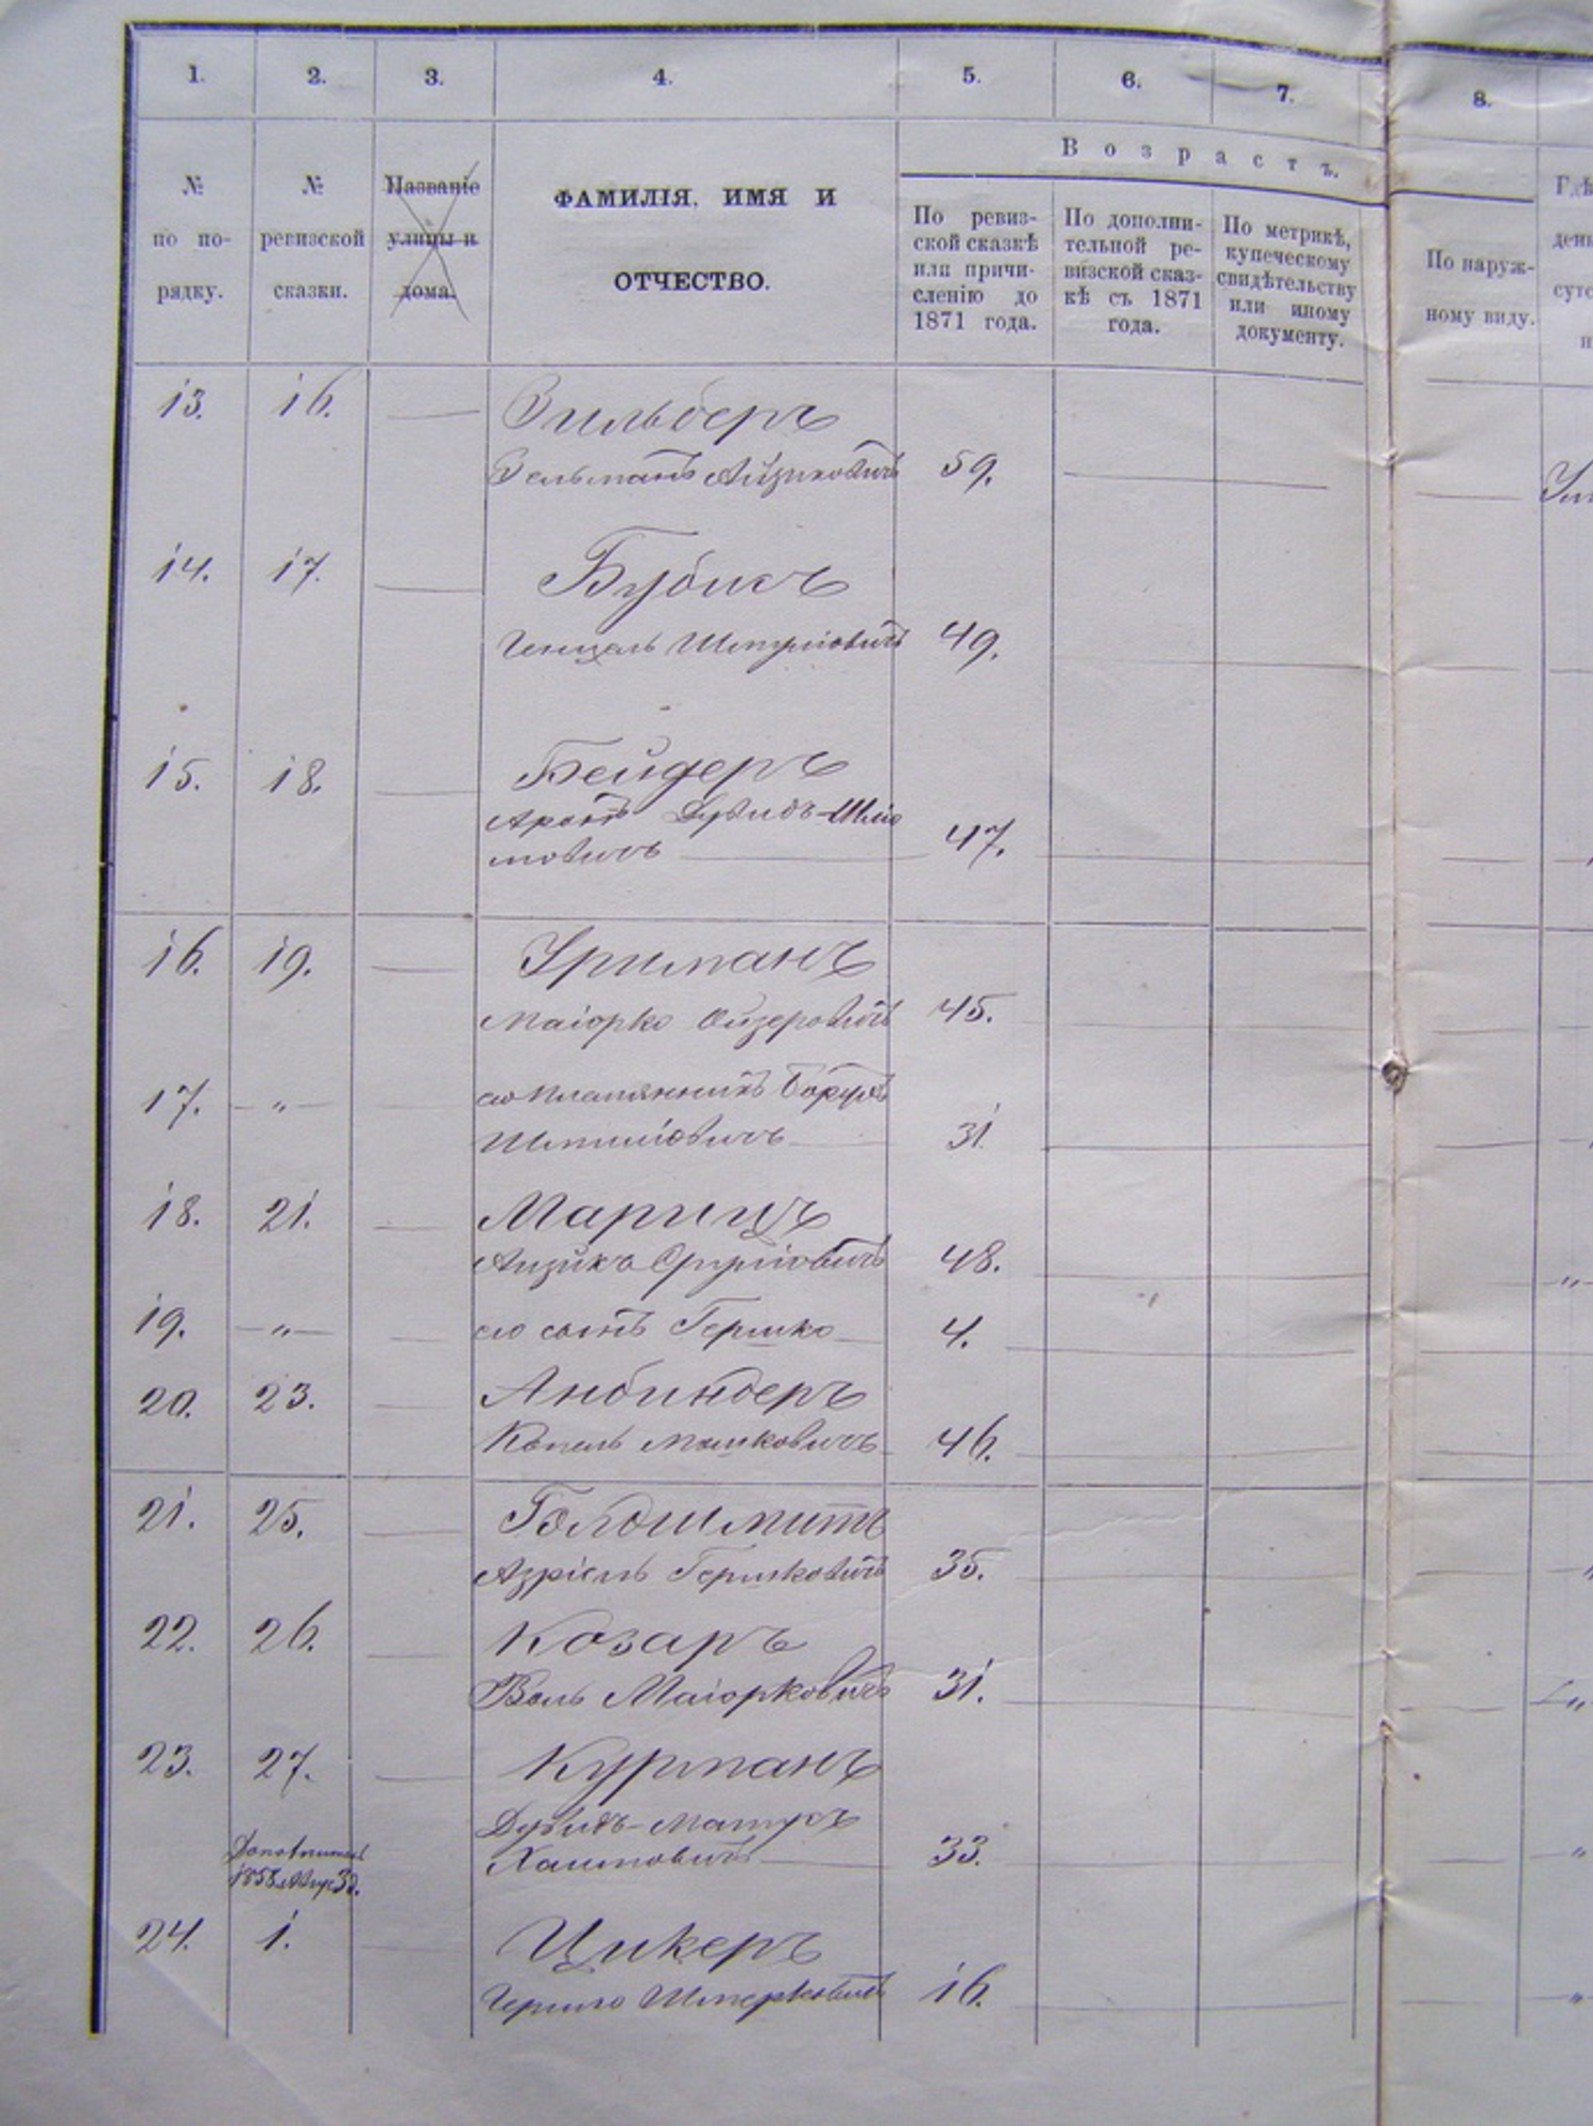 1. 2. 3. 4. 5. 6. 7. 8.
В о з р а с т ъ.
№ по по-рядку.
№ ревизской сказки.
Названіе улицы и дома.
ФАМИЛІЯ, ИМЯ И
ОТЧЕСТВО.
По ревиз-
ской сказкѣ
или причи-
сленію до
1871 года.
По дополни-
тельной ре-
визской сказ-
кѣ съ 1871
года.
По метрикѣ,
купеческому
свидѣтельству
или иному
документу.
По наруж-
ному виду.
13. 16. Зильберъ
Зельманъ Айзиковичъ 59.
14. 17. Бубисъ
49.
15. 18. Бейдеръ
Аронъ Дувидъ-Шлio
мовичъ 47.
16. 19. Урманъ
Маіорко Ойзеровичъ 45.
17. -"- его племянникъ Борухъ
31
18. 21. Марицъ
Айзикъ Сруліовичъ 48.
19. -"- его сынъ Гершко 4.
20. 23. Анбиндеръ
Копель Мошковичъ 46.
21. 25. Голдшмитъ
Азріель Гершковичъ 35.
22. 26. Козаръ
Волъ Маіорковичъ 31.
23. 27. Курманъ
Дувидъ-Матусъ
Хаимовичъ 33.
1858
24. 1. Цикеръ
Шмерковичъ 16.